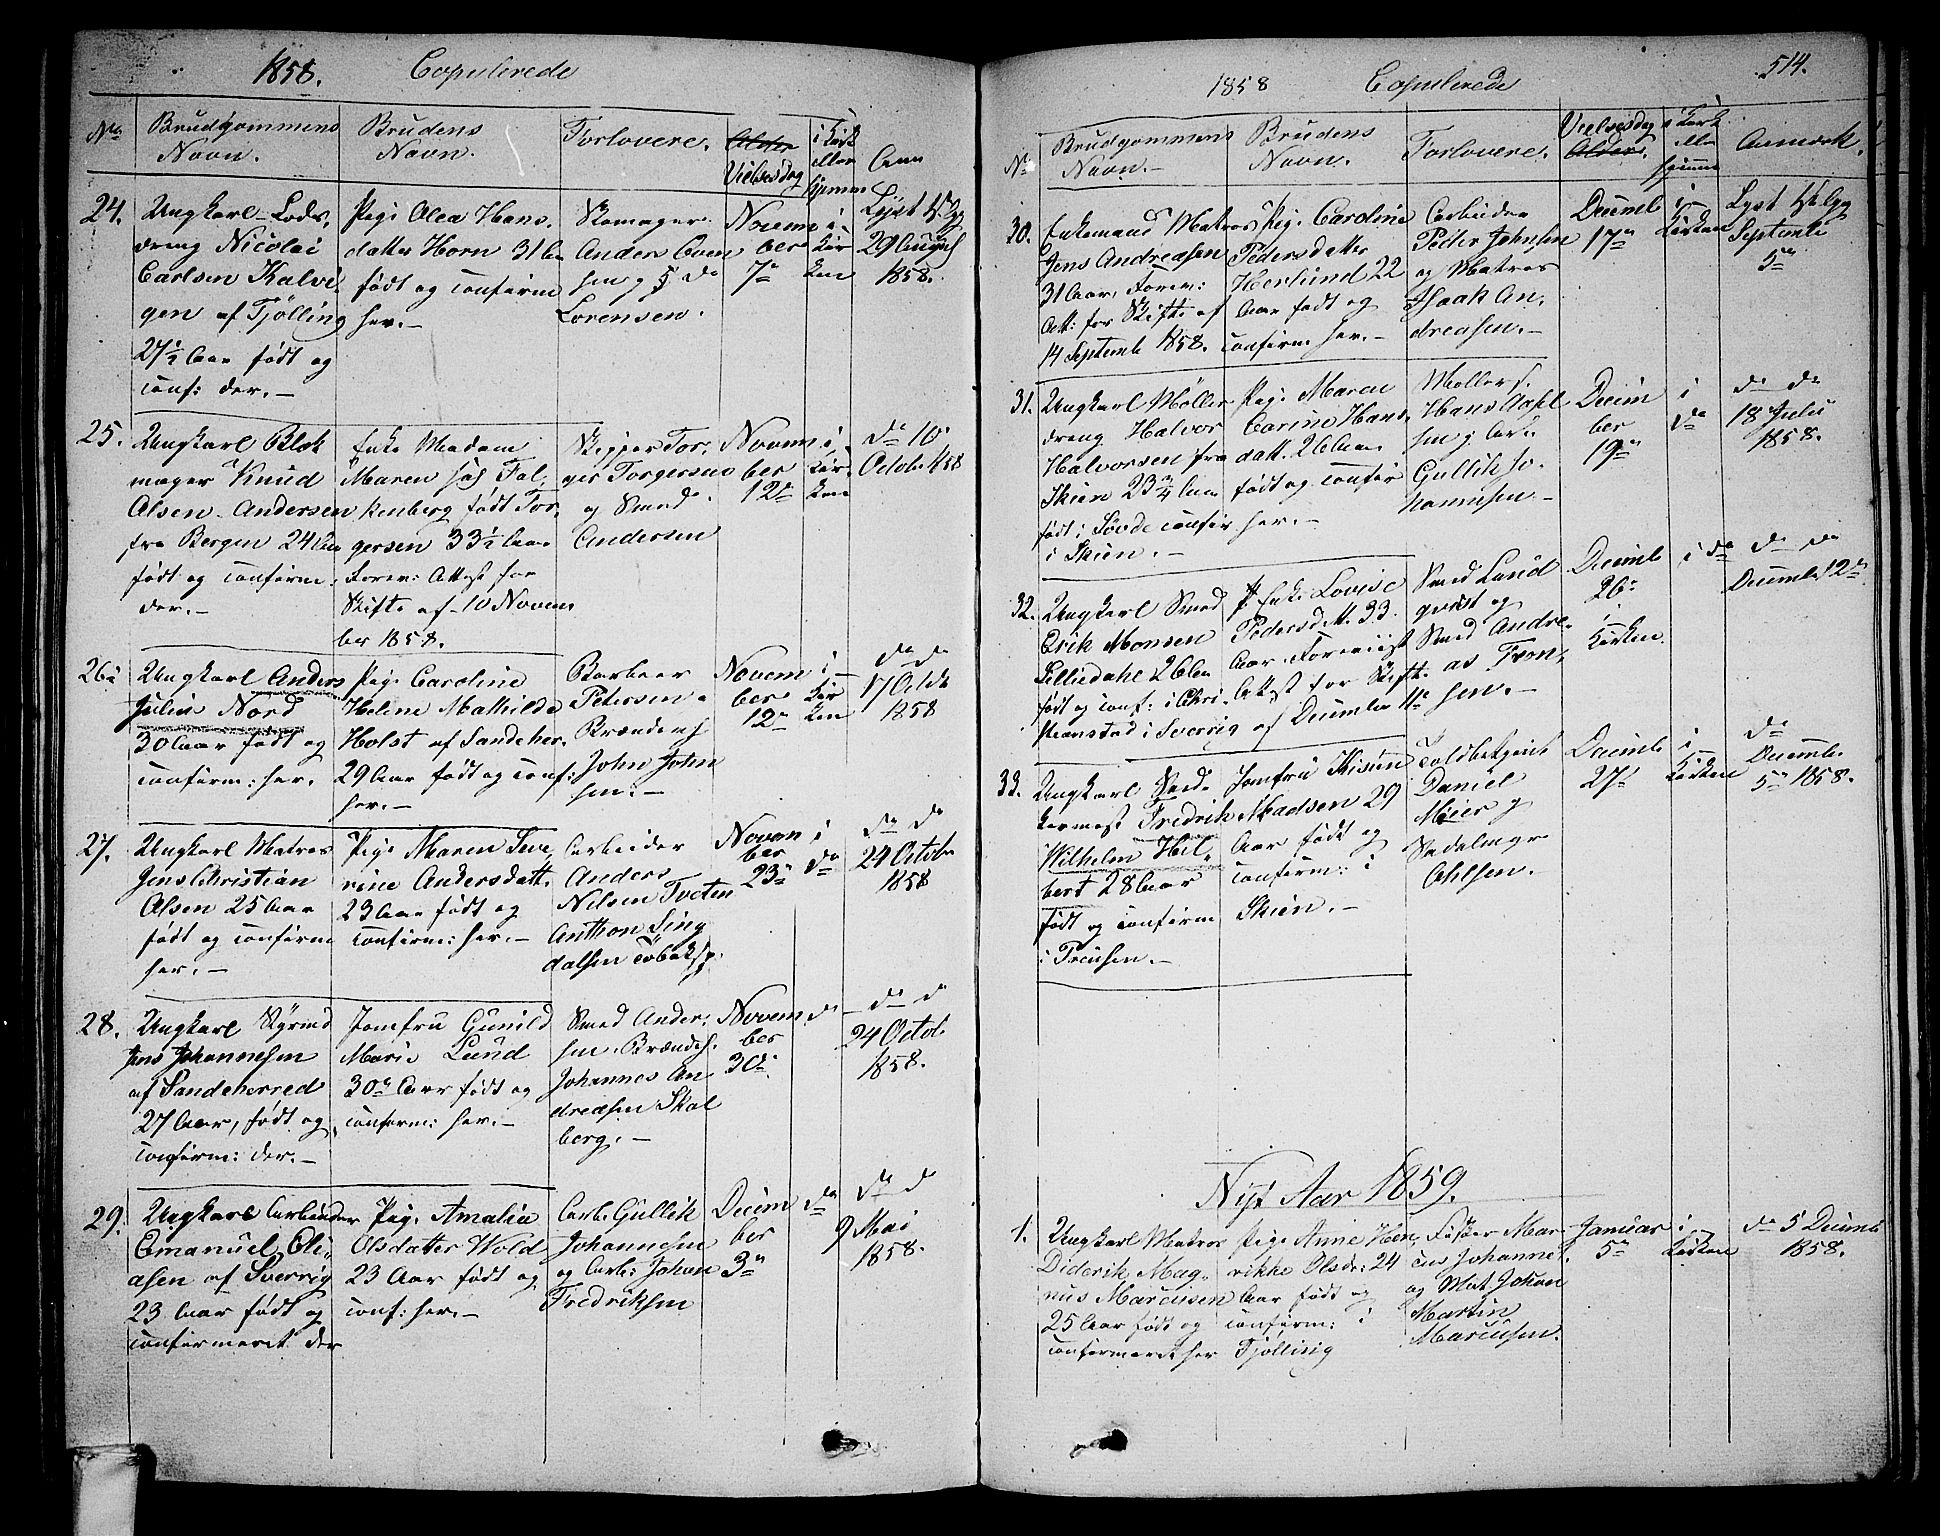 1858. Copulerede
No
Brudgommens Navn.
Brudens Navn.
Forlovere.
Alder
Vielsesdag
i Kirk eller hjemme
Anm
24.
Ungkarl Lods
dreng Nicolai
Carlsen Kalvi
gen af Tjølling
27½ Aar født og
conf: der.-
Pige Olea Hans
datter Horn 31 Aar
født og confirm
her.-
Skomager
Anders Even
sen g do
Lorensen.
Novem
ber
7de
i
Kir
ken
Lyst
29 August
1858.
25.
Ungkarl Blok
mager Knud
Olsen Andersen
fra Bergen 24 Aar
født og confirm.
der.-
Enke Madam
Maren Fal
kenberg født Tor
gersen 33½ Aar
Forev: Attest for
Skifte af 10 Novem
ber 1858.
Skipper Tor
ger Torgersen
og Smed
Andersen
Novem
ber
12te
i
Kir
ken
do 10
Octob. 1858
26.
Ungkarl Anders
Juliu Nord
30 Aar født og
confirm: her.
Pige Caroline
Heline Mathilde
Holst af Sandeher.
29 Aar født og conf:
her.-
Barbeer
Petersen
Brændev
John John
sen.-
Novem
ber
12te
i
Kir
ken
do do
17 Octb
1858
27.
Ungkarl Matros
Jens Christian
Olsen 25 Aar
født og confirm
her.-
Pige Maren Seve
rine Andersdatt.
23 Aar født og
confirm: her.-
Arbeider
Anders
Nilsen Tveten
Anthon Ling
dalsen Tobaksp.
Novem
ber
23de
i
do
do do
24 Octob
1858
28.
Ungkarl Styrmd
Jens Johannesen
af Sandeherred
27 Aar, født og
confirm: der.-
Jomfru Gunild
Marie Lund
30 Aar født og
confirm: her.-
Smed Ander
sen. Brændev.
Johannes An
dreasen Skal
berg.-
Novem
ber
30te
do
do do
24 Octob.
1858.
29.
Ungkarl Arbeider
Emanuel Eli
asen af Sverrig
23 Aar født og
confirmeret der
Pige Amalia
Olsdatter Wold
23 Aar født og
conf: her.-
Arb. Gullik
Johannesen
og Arb: Johan
Fredriksen
Decem
ber
3de
do
do do
9 Mai
1858.
1858 Copulerede 514.
No
Brudgommens Navn.-
Brudens Navn.
Forlovere.
Vielsesdag
Alder.
i Kirk eller hjemme
Anmærk.
30.
Enkemand Matros
Jens Andreasen
31 Aar, Forev:
Att: for Skifte af
14 Septemb 1858.
Pige Caroline
Pedersdatter
Herlund 22
Aar født og
confirm her.-
Arbeider
Peder Johnsen
og Matros
Isaak An
dreasen.-
Decemb
17de
i
Kirken
Lyst
Septemb
5te
31.
Ungkarl Møller
dreng Halvor
Halvorsen fra
Skien 23¾ Aar
født i Søvde confir
i Skien.-
Pige Maren
Carine Hans
datt. 26 Aar
født og confir
her.-
Møllers.
Hans
sen g Arb.
Gullik Jo
hannesen-
Decem
ber
19de
i
do
do do
18 Juli
1858.
32.
Ungkarl Smed
Erik Monsen
Lilliedahl 26 Aar
født og conf: i Chri
stianstad i Sverrig
P. Enke Lovise
Pedersdatt. 33.
Aar. Foreviist
Attest for Skifte
af Decembr 11te
Smed Lund
qvist og
Smed Andre
as Tron
sen.-
Decemb
26de
i
Kirken.
i do
do do
Decemb. 12te
33.
Ungkarl
kermest Fredrik
Wilhelm Hil
bert 28 Aar
født og confirm
i Preusen.-
Jomfru
Madsen 29
Aar født og
confirm: i
Skien.-
Toldbetjent
Daniel
Meier g
Sadelmgr
Ohlsen.-
Decemb
27de
i
Kirken
do
Decemb.
5te 1858.
Nyt Aar 1859.
1.
Ungkarl Matros
Diderik Mag
nus Marcusen
25 Aar født og
confirmeret her
Pige Anne Hen
rikke Olsd: 24
Aar født og
confirm: i
Tjølling
Fisker Mar
cus Johannes
og Mat Johan
Martin
Marcusen.
Januar
5te
i
Kirken
do 5 Decemb
1858.